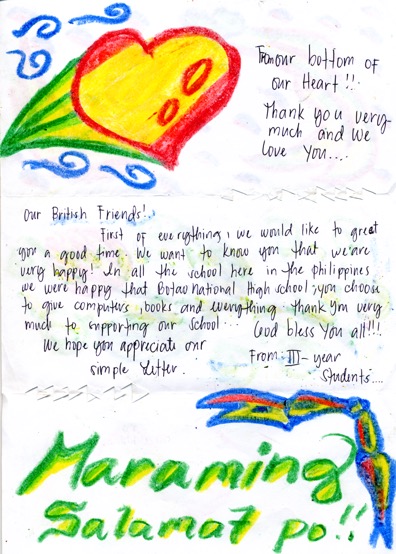 From our bottom of
our Heart!!
Thank you very
much and we
love You....
Our British Friends!.
First of everythings, we would like to great
you a good time. We want to know you that we are
very happy! In all the school here in the philippines
we were happy that Botao National High school ; you choose
to give computers, books and everything. Thank Ym very
much to supporting our school...
God bless You all!!!
We hope you appreciate our
simple Letter.
From: III-year
Students....
Maraming
Salamat po!!